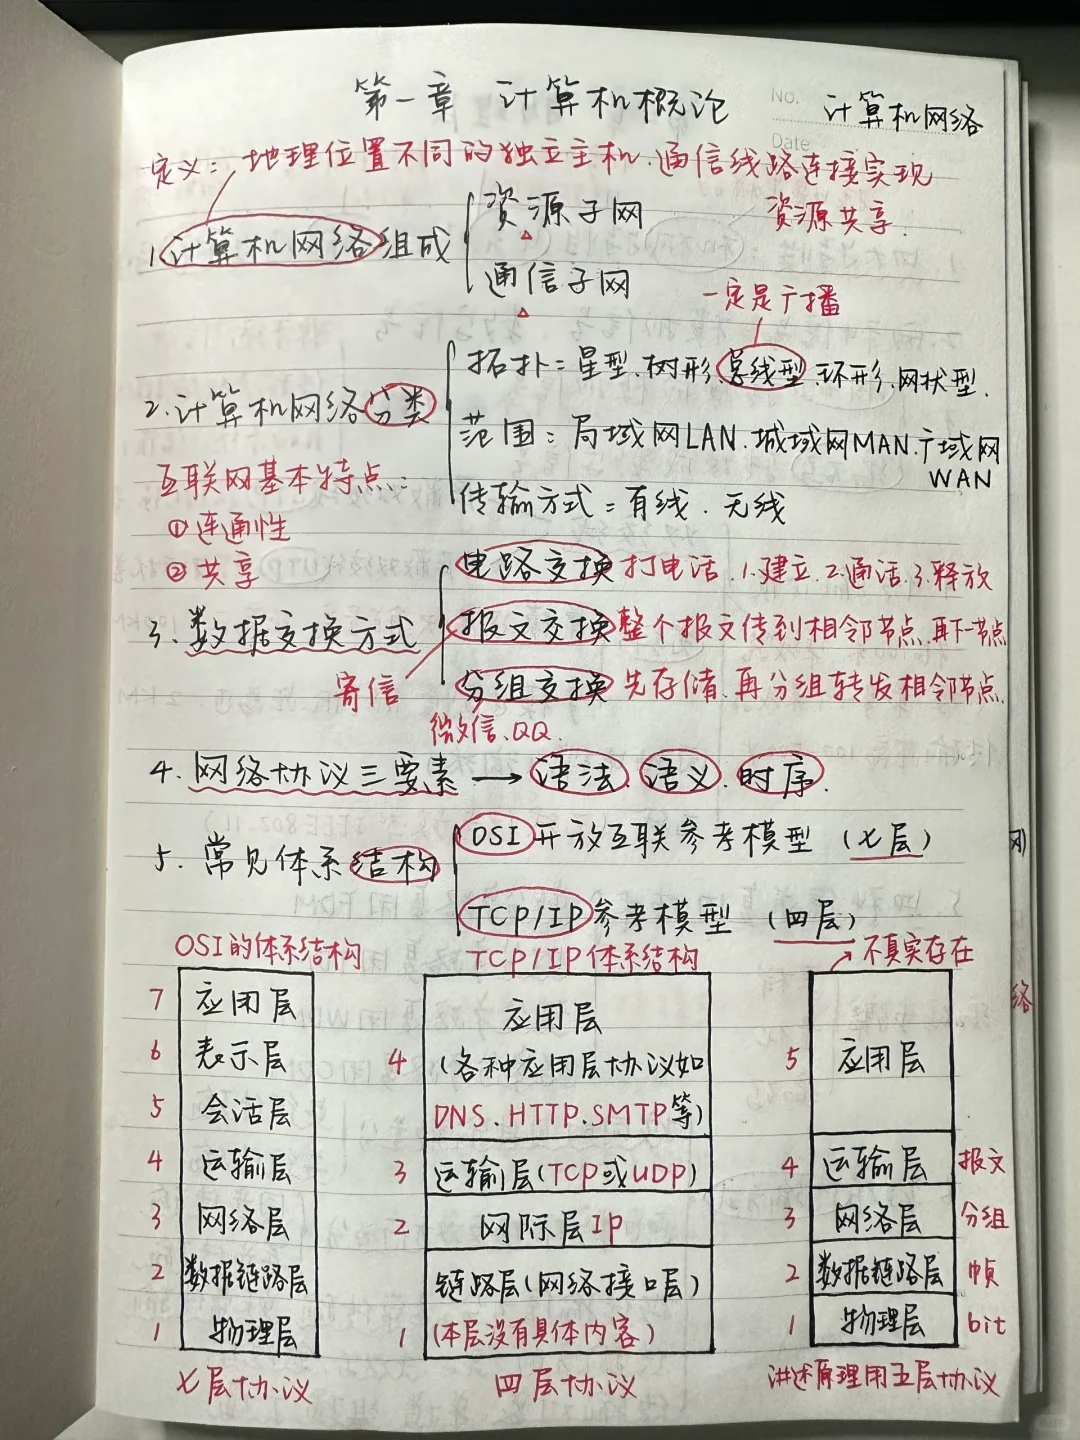 第一章 计算机概论
No.
计算机网络
Date
定义：地理位置不同的独立主机.通信线路连接实现
资源共享.
1.计算机网络组成
资源子网
通信子网
一定是广播
2.计算机网络分类
拓扑：星型.树形.总线型.环形.网状型.
范围：局域网LAN.城域网MAN.广域网
WAN
传输方式：有线.无线
互联网基本特点：
①连通性
②共享
3.数据交换方式
电路交换 打电话.1.建立.2.通话.3.释放
报文交换 整个报文传到相邻节点.再下一节点
寄信
分组交换 先存储.再分组转发相邻节点.
微信.QQ.
4.网络协议三要素→语法.语义.时序.
5.常见体系结构
OSI开放互联参考模型（七层）
TCP/IP参考模型（四层）
OSI的体系结构
7 应用层
6 表示层
5 会话层
4 运输层
3 网络层
2 数据链路层
1 物理层
七层协议
TCP/IP体系结构
4 应用层
(各种应用层协议如
DNS.HTTP.SMTP等)
3 运输层(TCP或UDP)
2 网际层IP
链路层(网络接口层)
1 (本层没有具体内容)
四层协议
不真实存在
5 应用层
4 运输层 报文
3 网络层 分组
2 数据链路层 帧
1 物理层 bit
讲述原理用五层协议